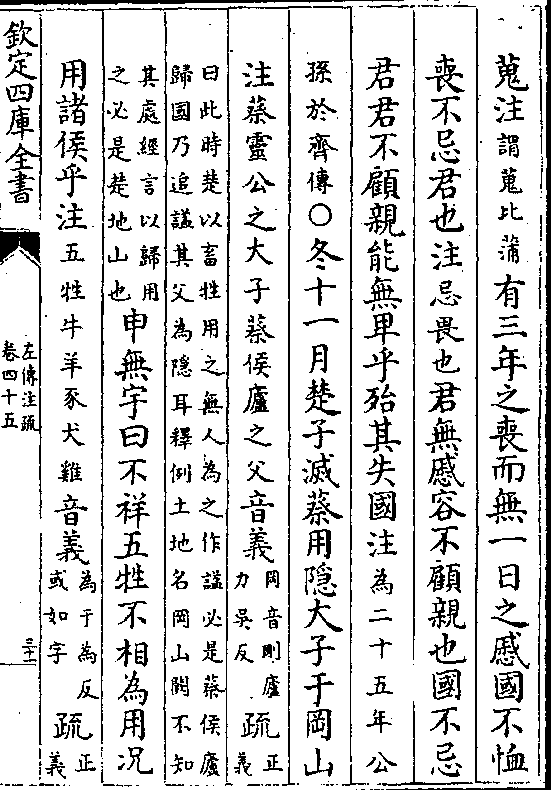 蒐注謂蒐比蒲有三年之喪而無一日之慼國不恤
喪不忌君也注忌畏也君無慼容不顧親也國不忌
君君不顧親能無卑乎殆其失國注為二十五年公
孫於齊傳○冬十一月楚子滅蔡用隱大子于岡山
注蔡靈公之大子蔡侯廬之父音義岡音剛廬
力吳反疏正義
曰此時楚以畜牲用之無人為之作諡必是蔡侯廬
歸國乃追諡其父為隱耳釋例土地名岡山闕不知
其處經言以歸用
之必是楚地山也申無宇曰不祥五牲不相為用况
用諸侯乎注五牲牛羊豕犬雞音義為于為反
或如字疏正義
欽定四庫全書
左傳注疏
卷四十五
三十一